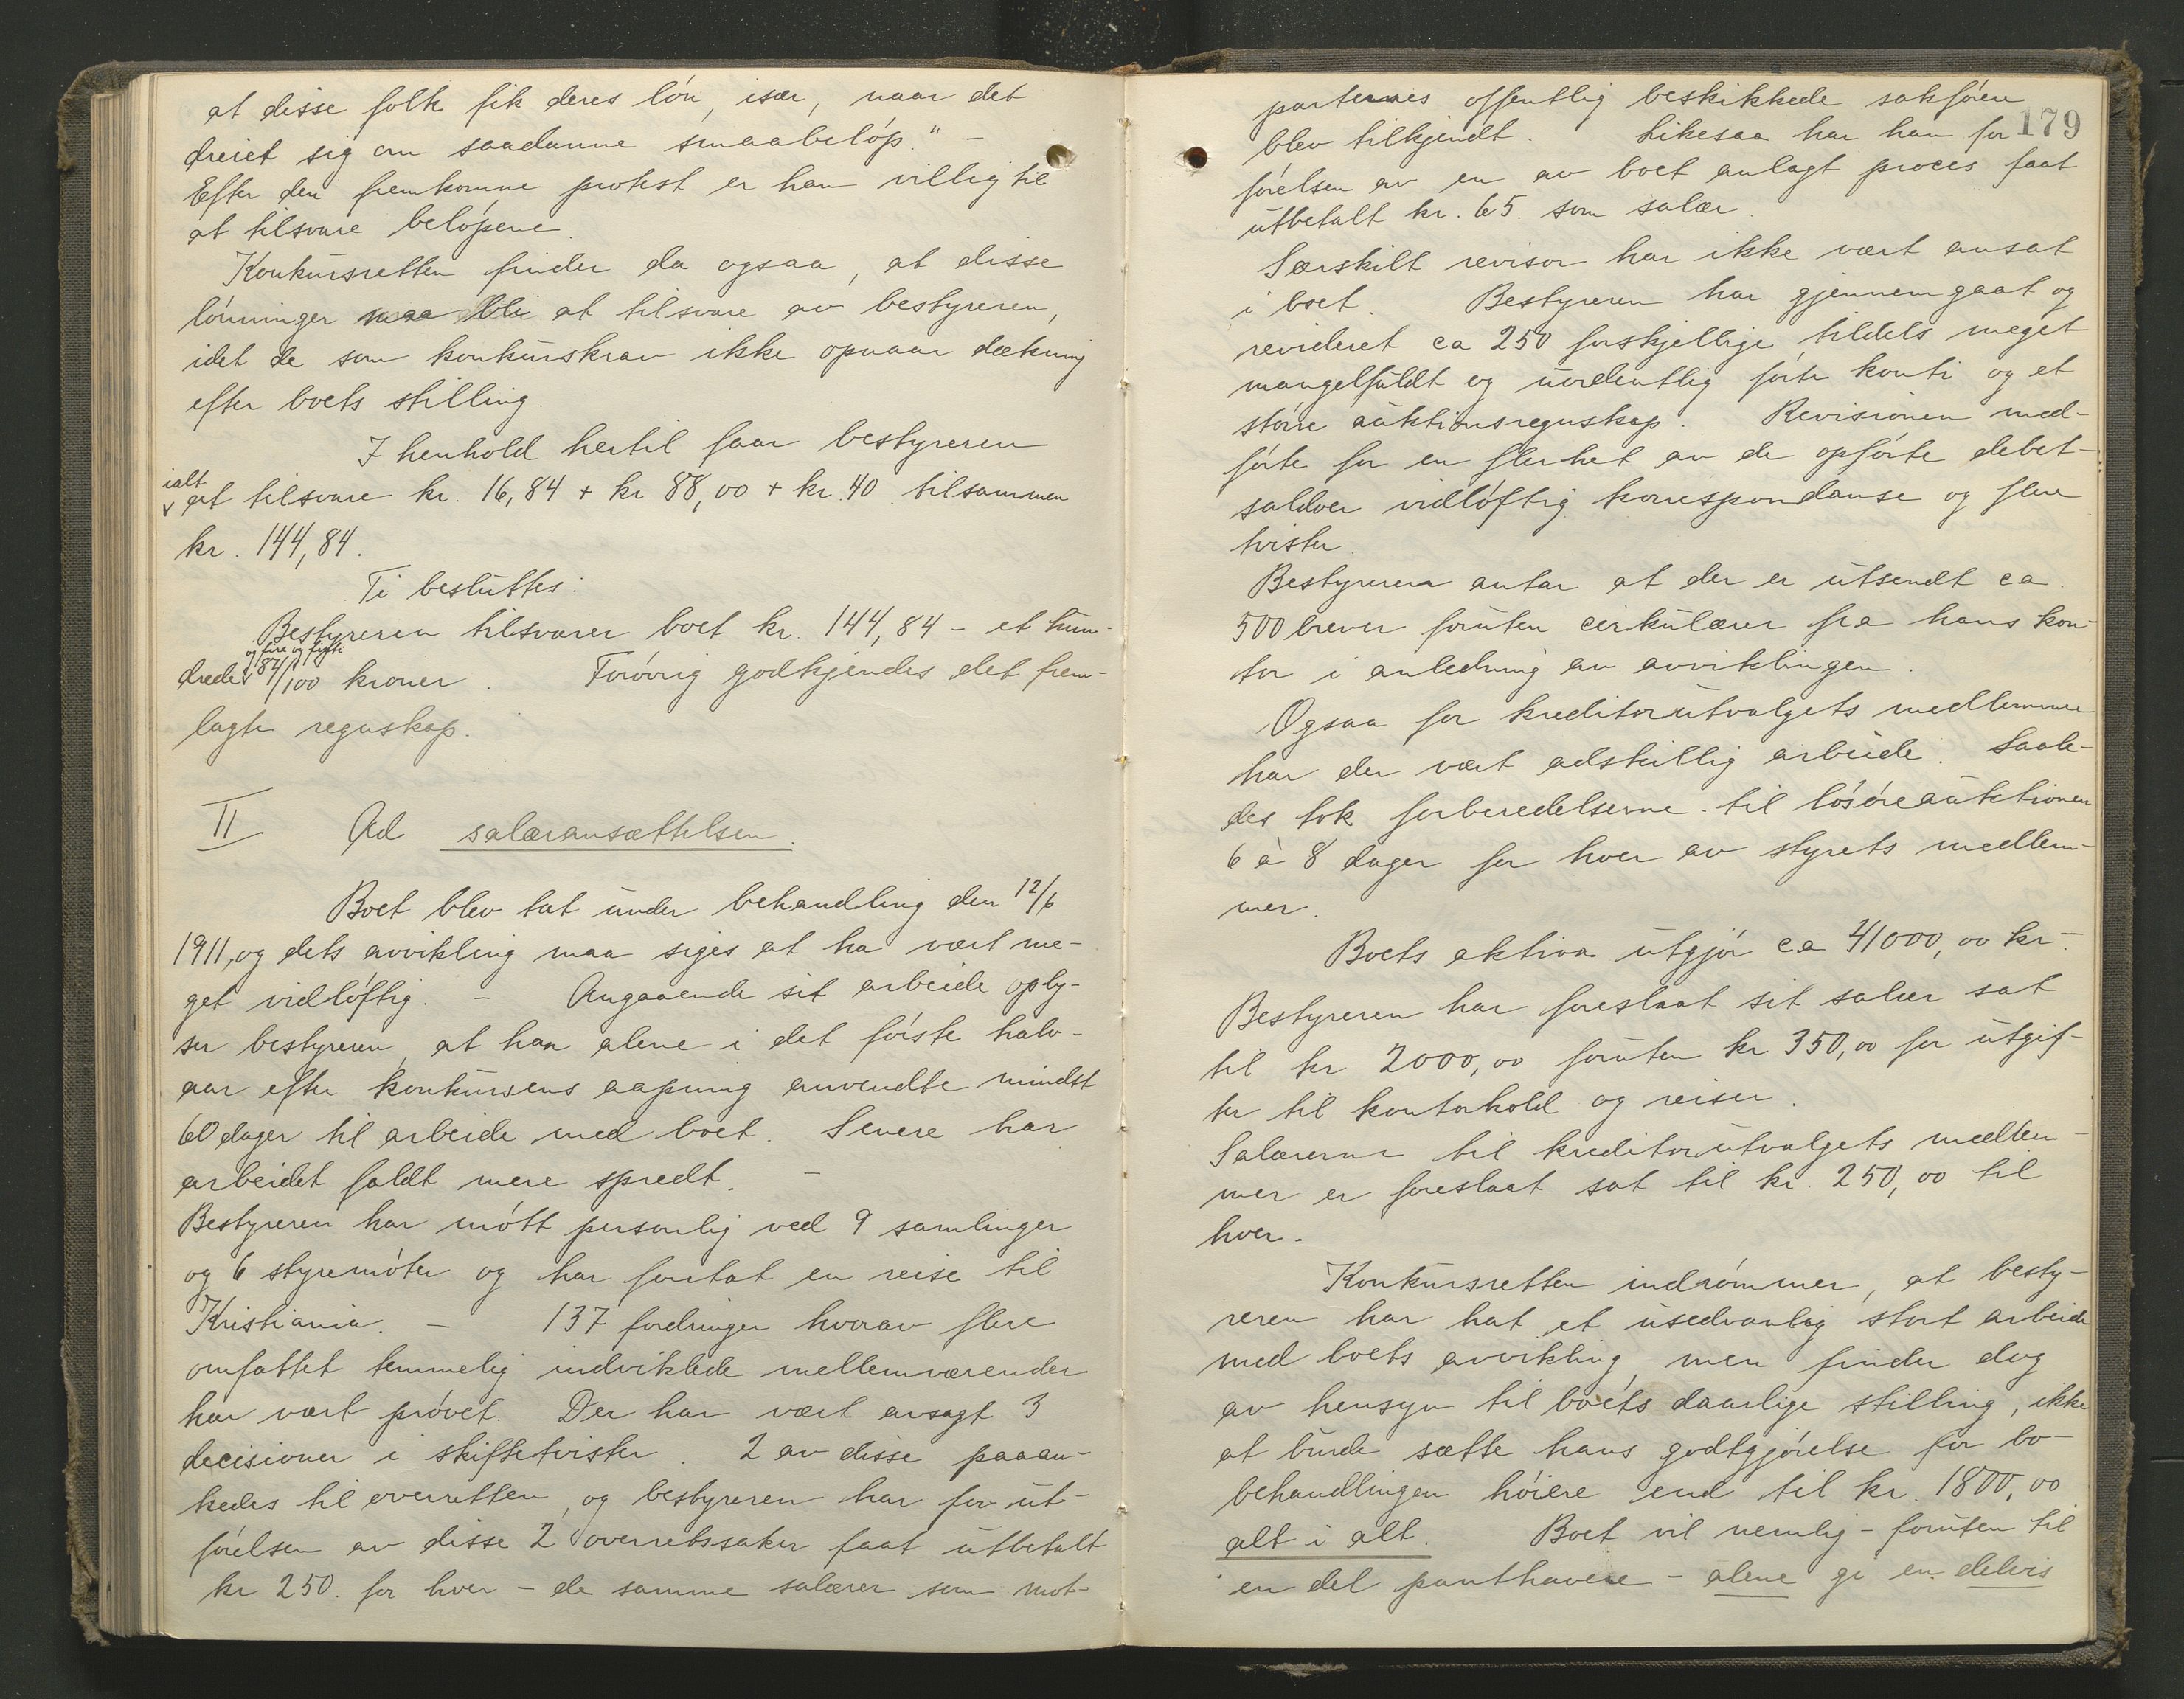 at disse folk fik deres lön, især, naar det
dreiet sig om saadanne smaabelöp." -
Efter den fremkomne protest er han villig til
at tilsvare belöpene.
Konkursretten finder da ogsaa, at disse
lönninger maa bli at tilsvare av bestyreren,
idet de som konkurskrav ikke opnaar dækning
efter boets stilling.
I henhold hertil faar bestyreren
ialt
at tilsvare kr. 16,84 + kr 88,00 + kr. 40 tilsammen
kr. 144,84.
Ti besluttes:
Bestyreren tilsvarer boet kr. 144,84 - et hun-
og fire og firti
drede 84/100 kroner. Forövrig godkjendes det frem-
lagte regnskap.
II Ad salæransættelsen.
Boet blev tat under behandling den 12/6
1911, og dets avvikling maa siges at ha vært me-
get vidlöftig. - Angaaende sit arbeide oply-
ser bestyreren, at han alene i det förste halv-
aar efter konkursens aapning anvendte mindst
60 dager til arbeide med boet. Senere har
arbeidet faldt mere spredt. -
Bestyreren har mött personlig ved 9 samlinger
og 6 styremöter og har foretat en reise til
Kristiania. - 137 fordringer hvorav flere
omfattet temmelig indviklede mellemværender
har vært prövet. Der har vært avsagt 3
decisioner i skiftetvister. 2 av disse paaan-
kedes til overretten, og bestyreren har for ut-
förelsen av disse 2 overretssaker faat utbetalt
kr 250. for hver - de samme salærer som mot-
179
parternes offentlig beskikkede sakförere
blev tilkjendt. Likesaa har han for
förelsen av en av boet anlagt proces faat
utbetalt kr. 65. som salær.
Særskilt revisor har ikke vært ansat
i boet. Bestyreren har gjennemgaat og
revideret ca 250 forskjellige tildels meget
mangelfuldt og uordentlig förte konti og et
större auktionsregnskap. Revisionen med-
förte for en flerhet av de opförte debet-
saldoer vidlöftig korrespondanse og flere
tvister.
Bestyreren antar at der er utsendt ca.
500 brever foruten cirkulærer fra hans kon-
tor i anledning av avviklingen.
Ogsaa for kreditorutvalgets medlemmer
har der vært adskillig arbeide. Saale-
des tok forberedelserne til lösöreauktionen
6 à 8 dager for hver av styrets medlem-
mer.
Boets aktiva utgjör ca 41000,00 kr.
Bestyreren har foreslaat sit salær sat
til kr 2000,00 foruten kr 350,00 for utgif-
ter til kontorhold og reiser.
Salærerne til kreditorutvalgets medlem-
mer er foreslaat sat til kr. 250,00 til
hver.
Konkursretten indrömmer, at besty-
reren har hat et usedvanlig stort arbeide
med boets avvikling men finder dog
av hensyn til boets daarlige stilling, ikke
at burde sætte hans godtgjörelse for bo-
behandlingen höiere end til kr. 1800,00
alt i alt. Boet vil nemlig - foruten til
en del panthavere - alene gi en delvis